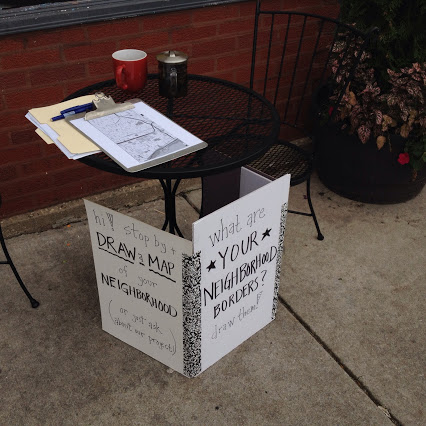 hi! stop by +
DRAW a MAP
of your
NEIGHBORHOOD
(or just ask
about our project!)
what are
★ YOUR ★
NEIGHBORHOOD
BORDERS?
draw them!